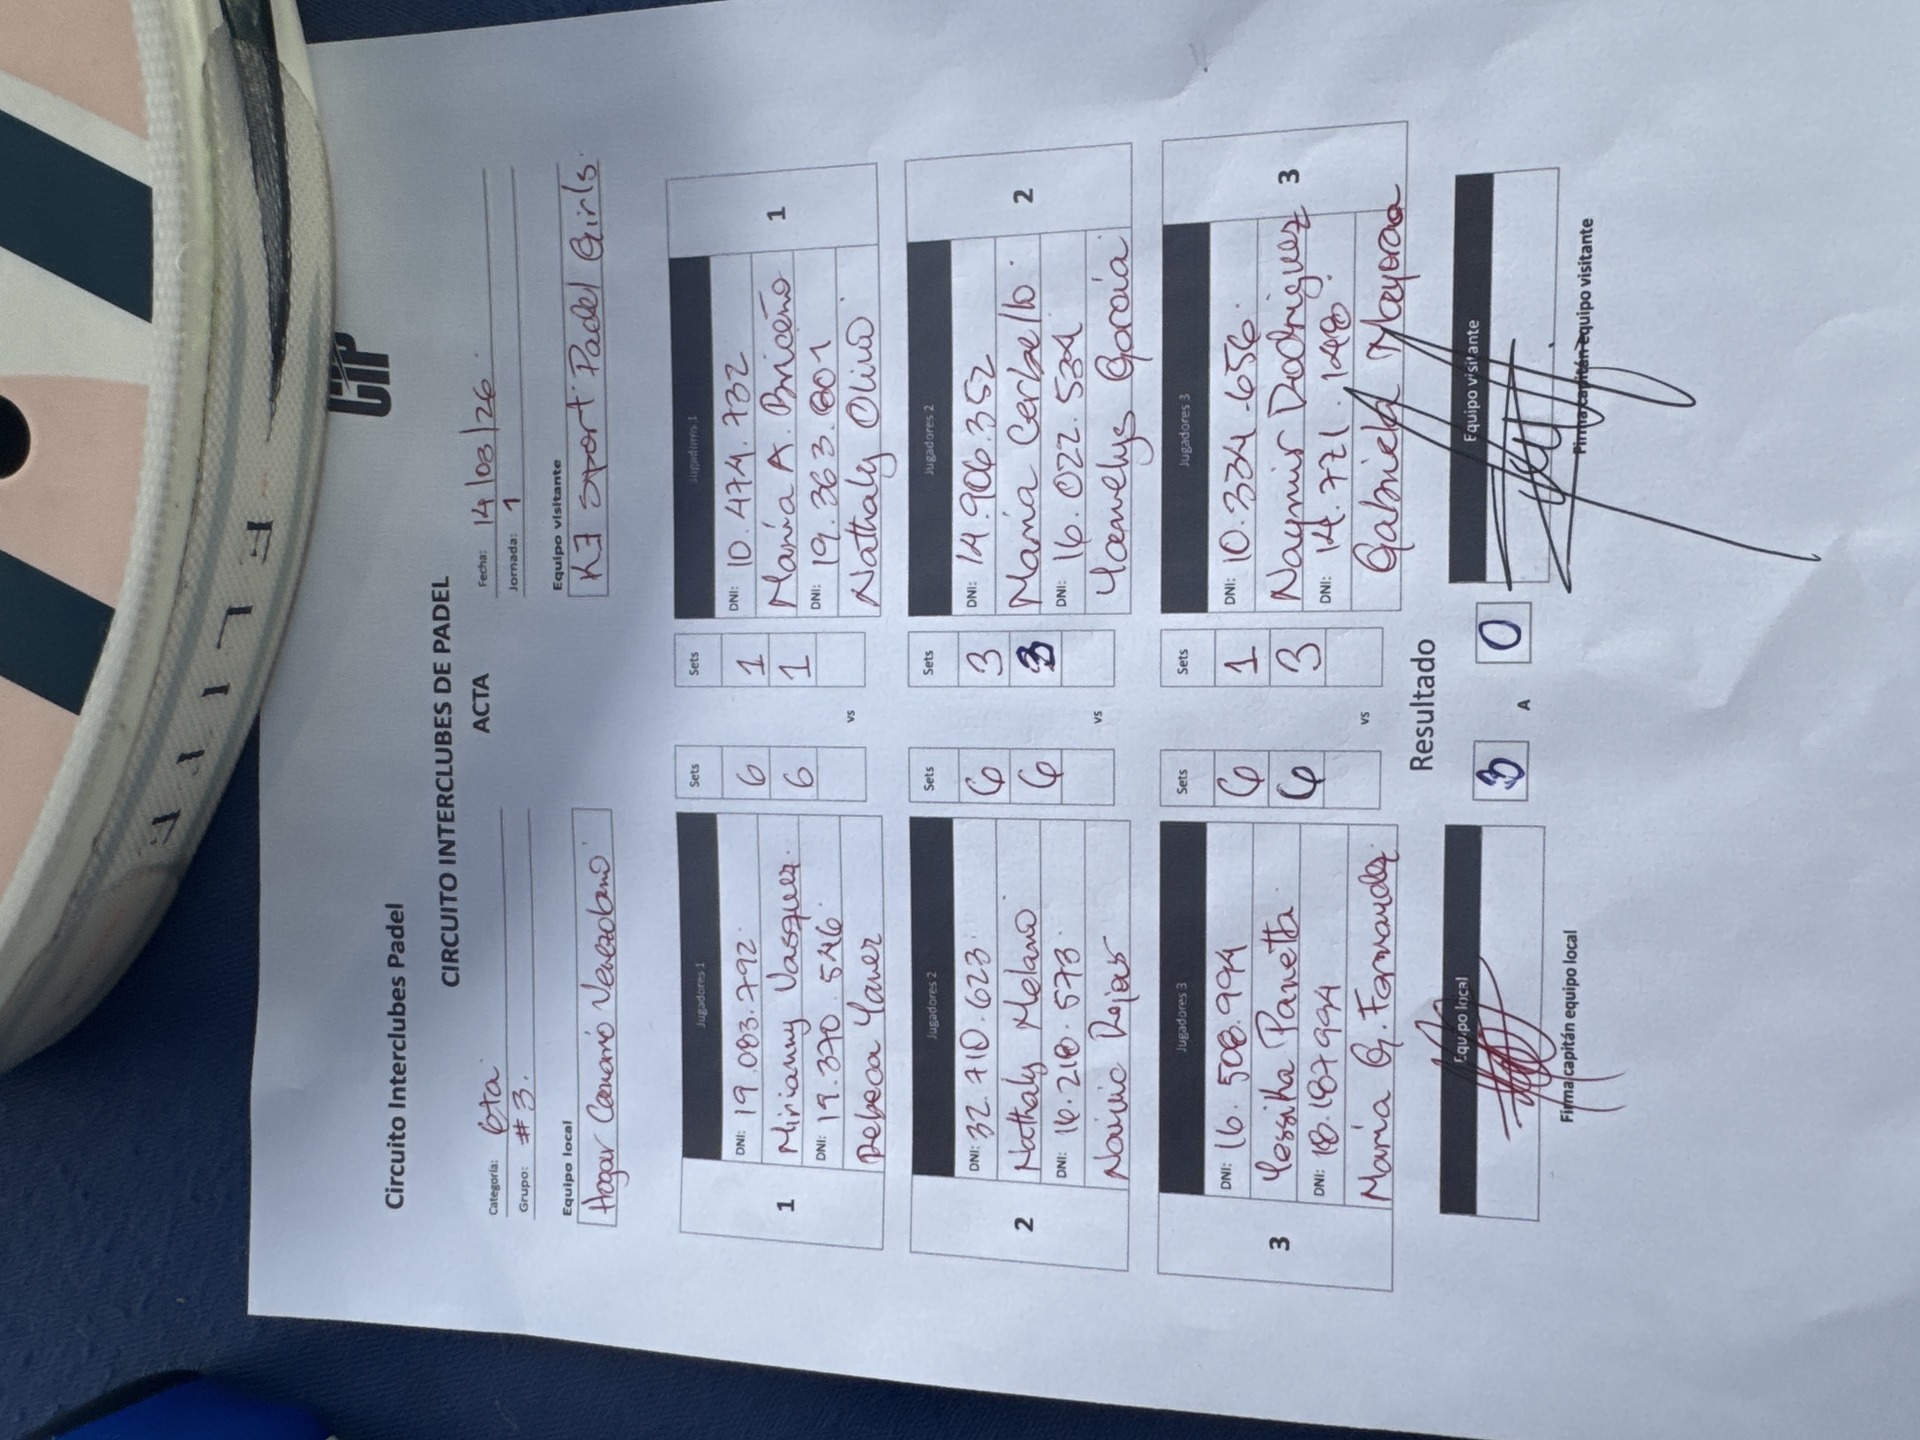 CIP
Circuito Interclubes Padel
CIRCUITO INTERCLUBES DE PADEL
ACTA
Categoría: 6ta
Fecha: 14/03/26
Grupo: #3.
Jornada: 1
Equipo local
Equipo visitante
Hogar Canario Venezolano
K7 Sport Padel Girls.
Jugadores 1 Sets Sets Jugadores 1
DNI: 19.083.792. 6 1 DNI: 10.474.732
1 Mirianny Vasquez. 6 1 María A. Briceño 1
DNI: 19.370.546. DNI: 19.363.801
Rebeca Yaner vs Nathaly Olivo.
Jugadores 2 Sets Sets Jugadores 2
DNI: 32.710.623 6 3 DNI: 14.906.352
2 Nathaly Melano 6 3 María Cerbello. 2
DNI: 16.218.573. DNI: 16.022.534
Rojas vs García.
Jugadores 3 Sets Sets Jugadores 3
DNI: 16.508.994 6 1 DNI: 10.334.656.
3 Yessika Panetta. 6 3 Naymir Rodriguez 3
DNI: 18.187.994 DNI: 14.721.148.
María G. Fernandez. vs Gabriela Mayora
Resultado
Equipo local 3 A 0 Equipo visitante
Firma capitán equipo local
Firma capitán equipo visitante